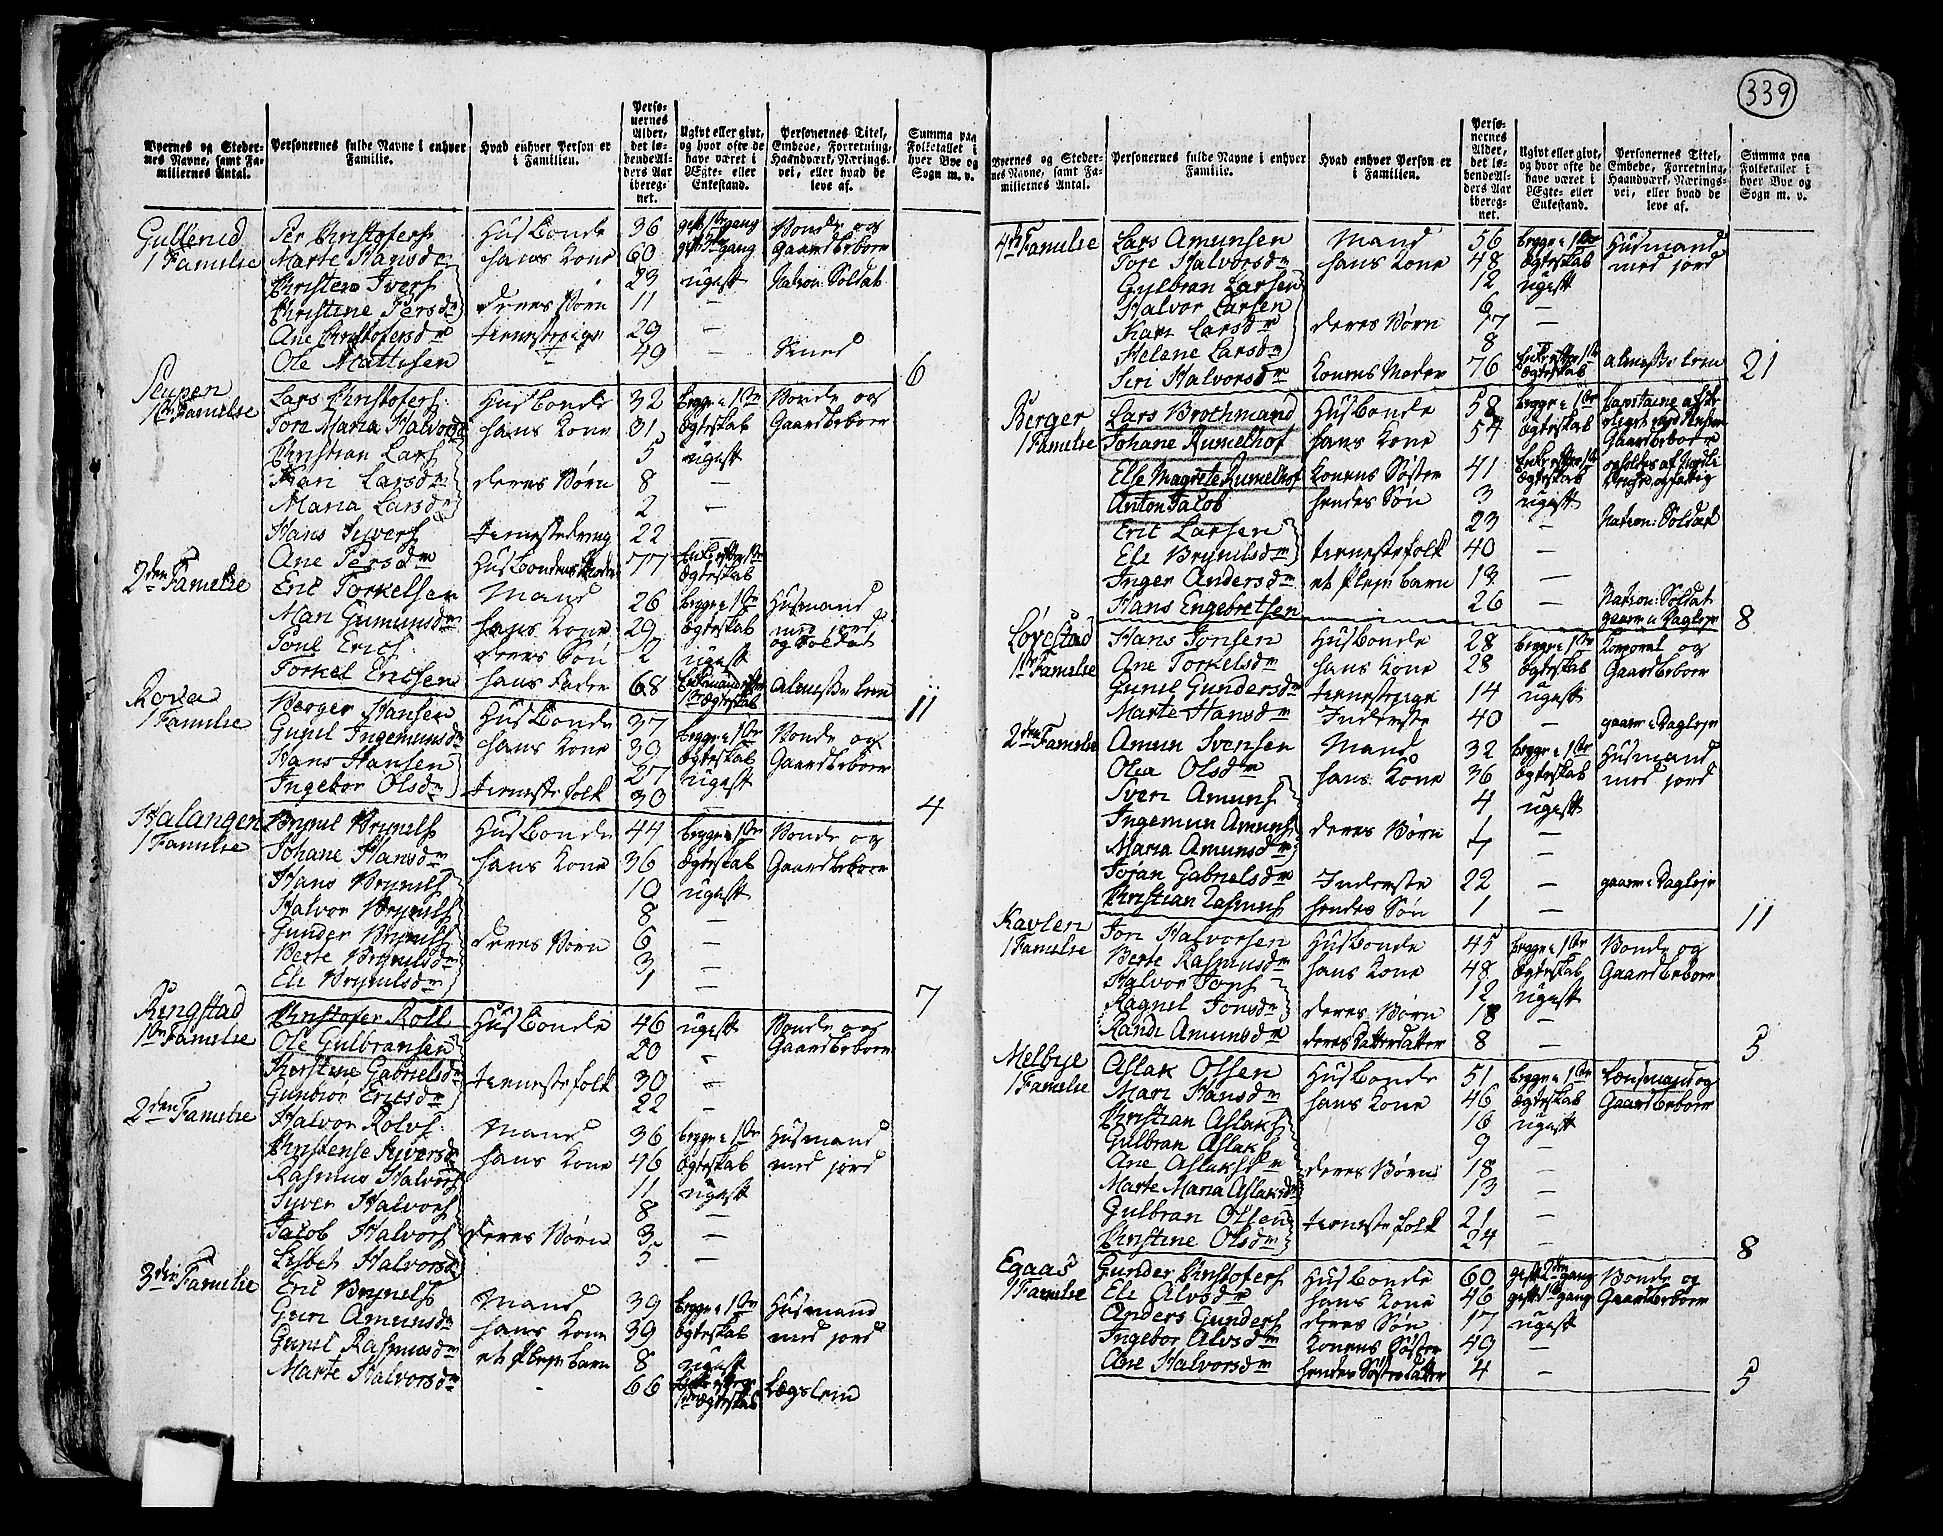 339
Byernes og Stedernes Navne, samt Familiernes Antal.
Personernes fulde Navne i enhver Familie.
Hvad enhver Person er i Familien.
Personernes Alder, det løbende Alders Aar iberegnet.
Ugivt eller givt, og hvor ofte de have været i Ægte- eller Enkestand.
Personernes Titel, Embede, Forretning, Haandværk, Næringsvei, eller hvad de leve af.
Summa paa Folketallet i hver Bye og Sogn m. v.
Gullerud 1 Familie Per Christofers Husbonde 36 gift 1ste gang Bonde og
Marte Hansdr hans Kone 60 gang Gaardbeboer
Christen Ivers 23 ugift Nation: Soldat
Christine Persdr deres Børn 11 —
Ane Christofersdr tienestepige 29 —
Ole Mattisen 49 — Smed 6
1ste Familie Lars Christofers: Husbonde 32 begge i 1ste Bonde og
Tore Maria Halvorsd hans Kone 31 Ægteskab Gaardbeboer
Christian Lars 5 ugift
Kari Larsdr deres Børn 8 —
Maria Larsdr 2 —
Hans Syvers tienestedreng 22 —
Ane Persdr Husbondens Moder 77 Ægteskab
2den Familie Eric Torkelsen Mand 26 begge i 1ste Husmand
Mari Gumundsdr hans Kone 29 Ægteskab med jord
Poul Erics: deres Søn 2 ugift og Soldat
Torkel Ericsen hans Fader 68 Enkemand efter 1ste Ægteskab Almisse lem 11
Rova 1 Familie Berger Hansen Husbonde 37 begge i 1ste Bonde og
Gunil Ingemunsdr hans Kone 39 Ægteskab Gaardbeboer
Hans Hansen 27 ugift
Ingebor Olsdr tienestefolk 30 4
Halangen 1 Familie Brynil Brynils Husbonde 44 begge i 1ste Bonde og
Johane Hansdr hans Kone 36 Ægteskab Gaardbeboer
Hans Brynils 10 ugift
Halvor Brynils 8 —
Gunder Brynils deres Børn 6 —
Berte Brynilsdr 3 —
Eli Brynilsdr 1 — 7
Ringstad 1ste Familie Christofer Roll Husbonde 46 ugift Bonde og
Ole Gulbransen 20 - Gaardbeboer
Kerstine Gabrielsdr tienestefolk 30 -
Gunbiør Ericsdr 22 -
2den Familie Halvor Rolvs: Mand 36 begge i 1ste Husmand
Christense Syversd hans Kone 46 Ægteskab med jord
Rasmus Halvors 11 ugift
Syver Halvors 8 —
Jacob Halvors deres Børn 3 —
Lisbet Halvorsd 5 —
3die Familie Eric Brynils Mand 39 begge i 1ste Husmand
Guri Amunsdr hans Kone 39 Ægteskab med jord
Gunil Rasmusdr et Pleje barn 8 ugift
Marte Halvorsdr - 66 1ste Ægteskab Lægslem
Byernes og Stedernes Navne, samt Familiernes Antal.
Personernes fulde Navne i enhver Familie.
Hvad enhver Person er i Familien.
Personernes Alder, det løbende Alders Aar iberegnet.
Ugivt eller givt, og hvor ofte de have været i Ægte- eller Enkestand.
Personernes Titel, Embede, Forretning, Haandværk, Næringsvei, eller hvad de leve af.
Summa paa Folketallet i hver Bye og Sogn m. v.
4de Familie Lars Amunsen Mand 56 begge i 1ste Husmand
Tore Halvorsdr hans Kone 48 Ægteskab med jord
Gulbran Larsen 12 ugift
Halvor Larsen 6 —
Kari Larsdr deres Børn —
Helene Larsdr 8
Siri Halvorsdr Konens Moder 76 Enke efter 1ste Ægteskab almisse lem 21
Berger 1 Familie Lars Brothmand Husbonde 58 begge i 1ste
Johane Rumelhof hans Kone 54 Ægteskab Gaardbeboer
Else Magrete Rumelhof Konens Søster 41 Enke efter 1ste Ægteskab
Anton Jacob hendes Søn 3 ugift
Eric Larsen 23 — Nation: Soldat
Eli Brynilsdr tienestefolk 40 —
Inger Andersdr et Pleje barn 13 —
Hans Engebretsen - 26 — Nation: Soldat gaaer i Dagleje 8
Løvestad 1ste Familie Hans Jonsen Husbonde 28 begge i 1ste Korporal og
Ane Torkelsdr hans Kone 28 Ægteskab Gaardbeboer
Gunil Gundersdr tienestepige 14 ugift
Marte Hansdr Inderste 40 — gaaer i Dagleje
2den Familie Amun Svensen Mand 32 begge i 1ste Husmand
Olea Olsdr hans Kone 36 Ægteskab med jord
Sven Amuns 4 ugift
Ingemun Amuns deres Børn 1 —
Maria Amunsdr —
Jøran Gabrielsdr Inderste 22 — gaaer i Dagleje
Christian Rasmus hendes Søn 1 — 11
Kavlen 1 Familie Jon Halvorsen Husbonde 45 begge i 1ste Bonde og
Berte Rasmusdr hans Kone 48 Ægteskab Gaardbeboer
Halvor Jons 12 ugift
Ragnil Jonsdr deres Børn 18 —
Randi Amunsdr deres Datterdatter 8 — 5
Melbye 1 Familie Aslak Olsen Husbonde 51 begge i 1ste Lensmand og
Mari Hansdr hans Kone 46 Ægteskab Gaardbeboer
Christian Aslaks 16 ugift
Gulbran Aslaks 9 —
Ane Aslaksdr deres Børn 18 —
Marte Maria Aslaksdr 13 —
Gulbran Olsen tienestefolk 21 —
Christine Olsdr 24 — 8
Egaas 1 Familie Gunder Christofers Husbonde 60 gift gang Bonde og
Eli Alvsdr hans Kone 46 gift 1ste gang Gaardbeboer
Anders Gunders deres Søn 17 ugift
Ingebor Alvsdr Konens Søster 49 —
Ane Halvorsdr hendes Søsterdatter 4 — 5